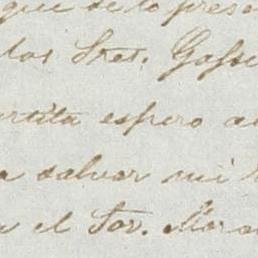 que se lo prese
los Sres. Gosse
rtita espero a
a salvar mi
el Sor. Mora